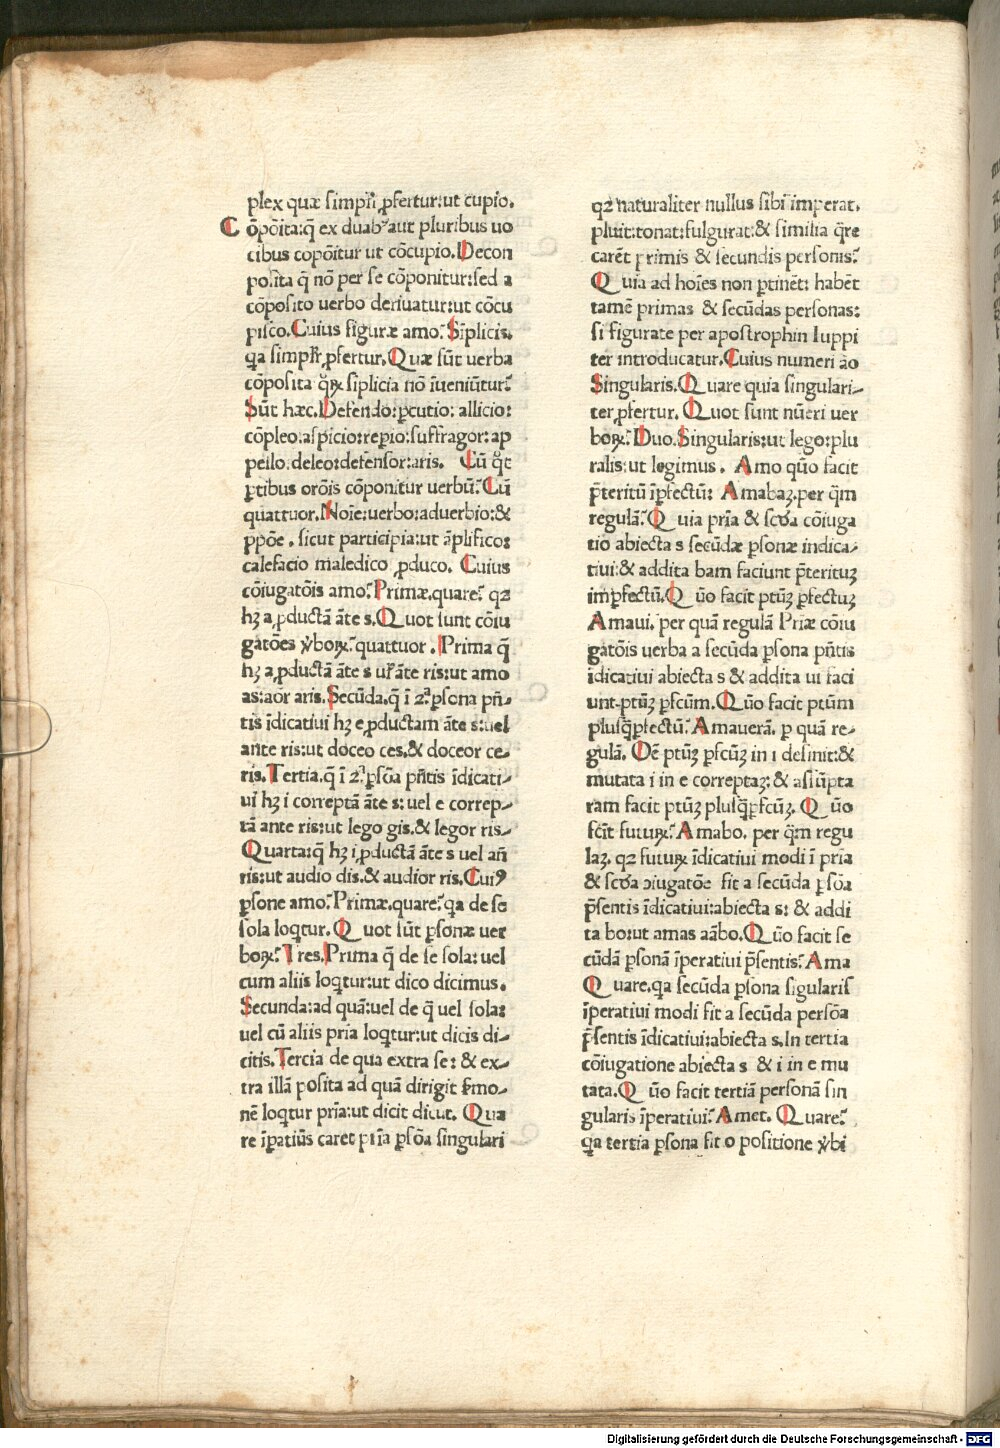 plex quæ simpłr ꝓfertur:ut cupio.
Cōpōita:q̄ ex duabꝰ aut pluribus uo
cibus copōitur ut cōcupio. Decon
posita q̄ nō per se cōponitur:sed a
cōposito uerbo deriuatur:ut cōcu
pisco. Cuius figuræ amo? Sīplicis.
qa simplr̄ ꝓfertur. Quæ sūt uerba
cōposita qꝝ siplicia nō īueniūtur?
Sūt hæc. Defendo: ꝑcutio: allicio:
cōpleo. aspicio: reꝑio: suffragor: ap
pello. deleo: defensor: aris. Cū qōt
ꝑtibus orōis cōponitur uerbū? Cū
quattuor. Noīe: uerbo: aduerbio: &
ꝓpōe. sicut participia: ut āplifico:
calefacio maledico ꝓduco. Cuius
cōiugatōis amo? Primæ. quare? qꝛ
hꝫ a ꝓductā āte s. Quot sunt cōiu
gatōes ꝟboꝝ? quattuor. Prima q̄
hꝫ a ꝓductā āte s uł āte ris: ut amo
as: aor aris. Secūda. q̄ ī 2ª ꝑsona pñ-
tis īdicatiui hꝫ e ꝓductam āte s: uel
ante ris: ut doceo ces. & doceor ce-
ris. Tertia. q̄ ī 2ª ꝑsōa pñtis īdicati-
ui hꝫ i correptā āte s: uel e correp-
tā ante ris: ut lego gis. & legor ris-
Quarta: q̄ hꝫ i ꝓductā āte s uel añ
ris: ut audio dis. & audior ris. Cuiꝰ
ꝑsone amo? Primæ. quare? qa de se
sola loqtur. Quot sūt ꝑsonæ uer
boꝝ? Tres. Prima q̄ de se sola: uel
cum aliis loqtur: ut dico dicimus.
Secunda: ad quā: uel de q̄ uel sola:
uel cū aliis pria loqtur: ut dicis di-
citis. Tercia de qua extra se: & ex-
tra illā posita ad quā dirigit ẜmo-
nē loqtur pria: ut dicit dicūt. Qua
re īꝑatiūs caret pria ꝑsōa singulari
qꝛ naturaliter nullus sibi imperat.
pluit: tonat: fulgurat: & similia qre
carēt primis & secundis personis?
Quia ad hoīes non ꝑtinēt: habēt
tamē primas & secūdas personas:
si figurate per apostrophin Iuppi
ter introducatur. Cuius numeri āo
Singularis. Quare quia singulari-
ter ꝓfertur. Quot sunt nūeri uer
boꝝ? Duo. Singularis: ut lego: plu
ralis: ut legimus. Amo quō facit
p̄teritū īꝑfectū: Amabaꝫ. per q̄m
regulā? Quia pria & scďa cōiuga
tio abiecta s secūdæ ꝑsonæ indica-
tiui: & addita bam faciunt p̄terituꝫ
imꝑfectū. Quō facit ptūꝫ ꝑfectuꝫ
Amaui. per quā regulā Priæ cōiu
gatōis uerba a secūda ꝑsona pñtis
īdicatiui abiecta s & addita ui faci
unt ptūꝫ ꝑfcūm. Quō facit ptūm
plusq̄ꝑfectū? Amauerā. ꝑ quā re-
gulā. Oē ptūꝫ ꝑfcūꝫ in i desinit: &
mutata i in e correptaꝫ: & assūpta
ram facit ptūꝫ plusq̄ꝑfcūꝫ. Quō
fcīt futuꝝ? Amabo. per q̄m regu
laꝫ. qꝛ futuꝝ īdicatiui modi ī pria
& scďa ꝯiugatōe fit a secūda ꝑsōa
p̄sentis īdicatiui: abiecta s: & addi
ta bo: ut amas aābo. Quō facit se
cūdā ꝑsonā īperatiui p̄sentis? Ama
Quare. qa secūda ꝑsona sigularis
īperatiui modi fit a secūda persōa
p̄sentis īdicatiui: abiecta s. In tertia
cōiugatione abiecta s & i in e mu
tata. Quō facit tertiā personā sin
gularis īperatiui? Amet. Quare?
qa tertia ꝑsona fit o positione ꝟbi
Digitalisierung gefördert durch die Deutsche Forschungsgemeinschaft - DFG